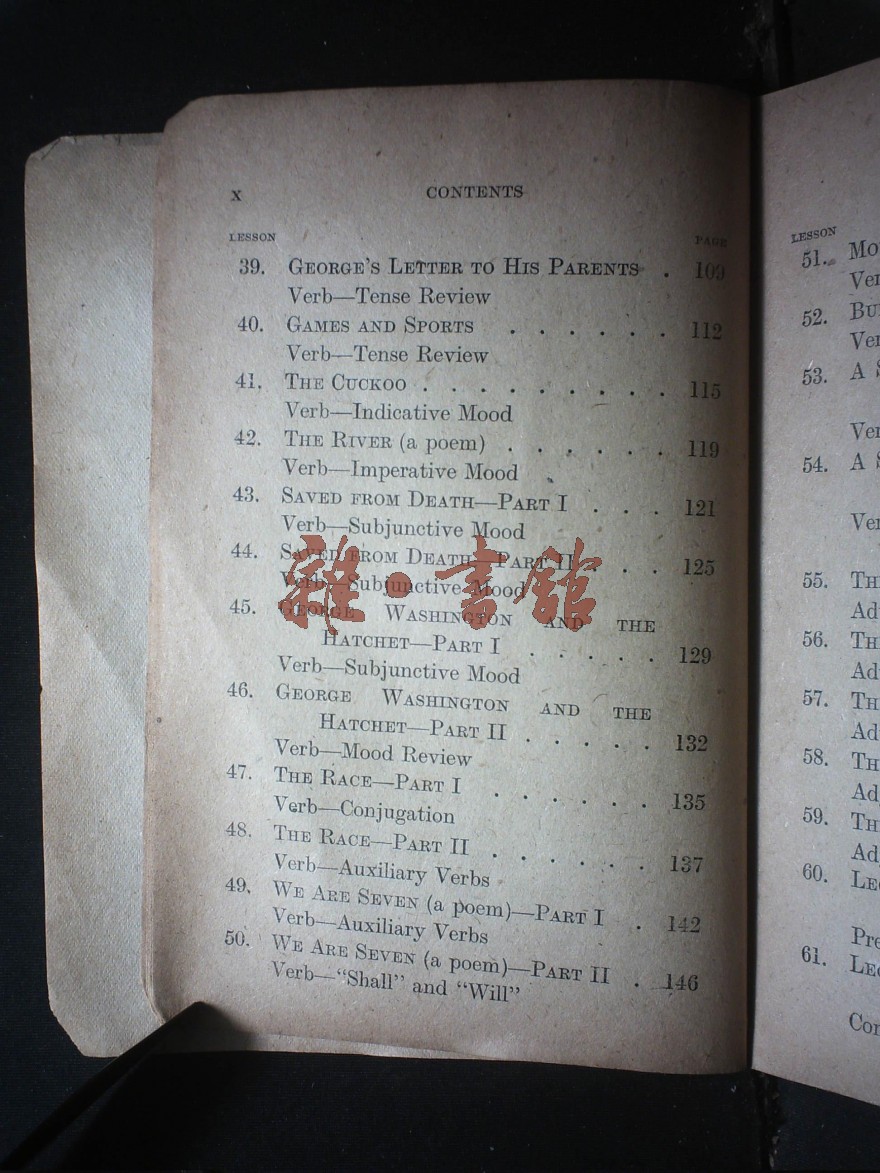 x CONTENTS
LESSON PAGE
39. GEORGE'S LETTER TO HIS PARENTS . 109
Verb—Tense Review
40. GAMES AND SPORTS . . . . . . 112
Verb—Tense Review
41. THE CUCKOO . . . . . . . . . 115
Verb—Indicative Mood
42. THE RIVER (a poem) . . . . . . 119
Verb—Imperative Mood
43. SAVED FROM DEATH—PART I . . . 121
Verb—Subjunctive Mood
44. SAVED FROM DEATH—PART II . . 125
Verb—Subjunctive Mood
45. GEORGE WASHINGTON AND THE
HATCHET—PART I . . . . . 129
Verb—Subjunctive Mood
46. GEORGE WASHINGTON AND THE
HATCHET—PART II . . . . . 132
Verb—Mood Review
47. THE RACE—PART I . . . . . . 135
Verb—Conjugation
48. THE RACE—PART II . . . . . . 137
Verb—Auxiliary Verbs
49. WE ARE SEVEN (a poem)—PART I . 142
Verb—Auxiliary Verbs
50. WE ARE SEVEN (a poem)—PART II . 146
Verb—"Shall" and "Will"
雜·書館
LESSON
51.
52.
53. A
54. A
55.
56.
57.
58.
59.
60.
61.